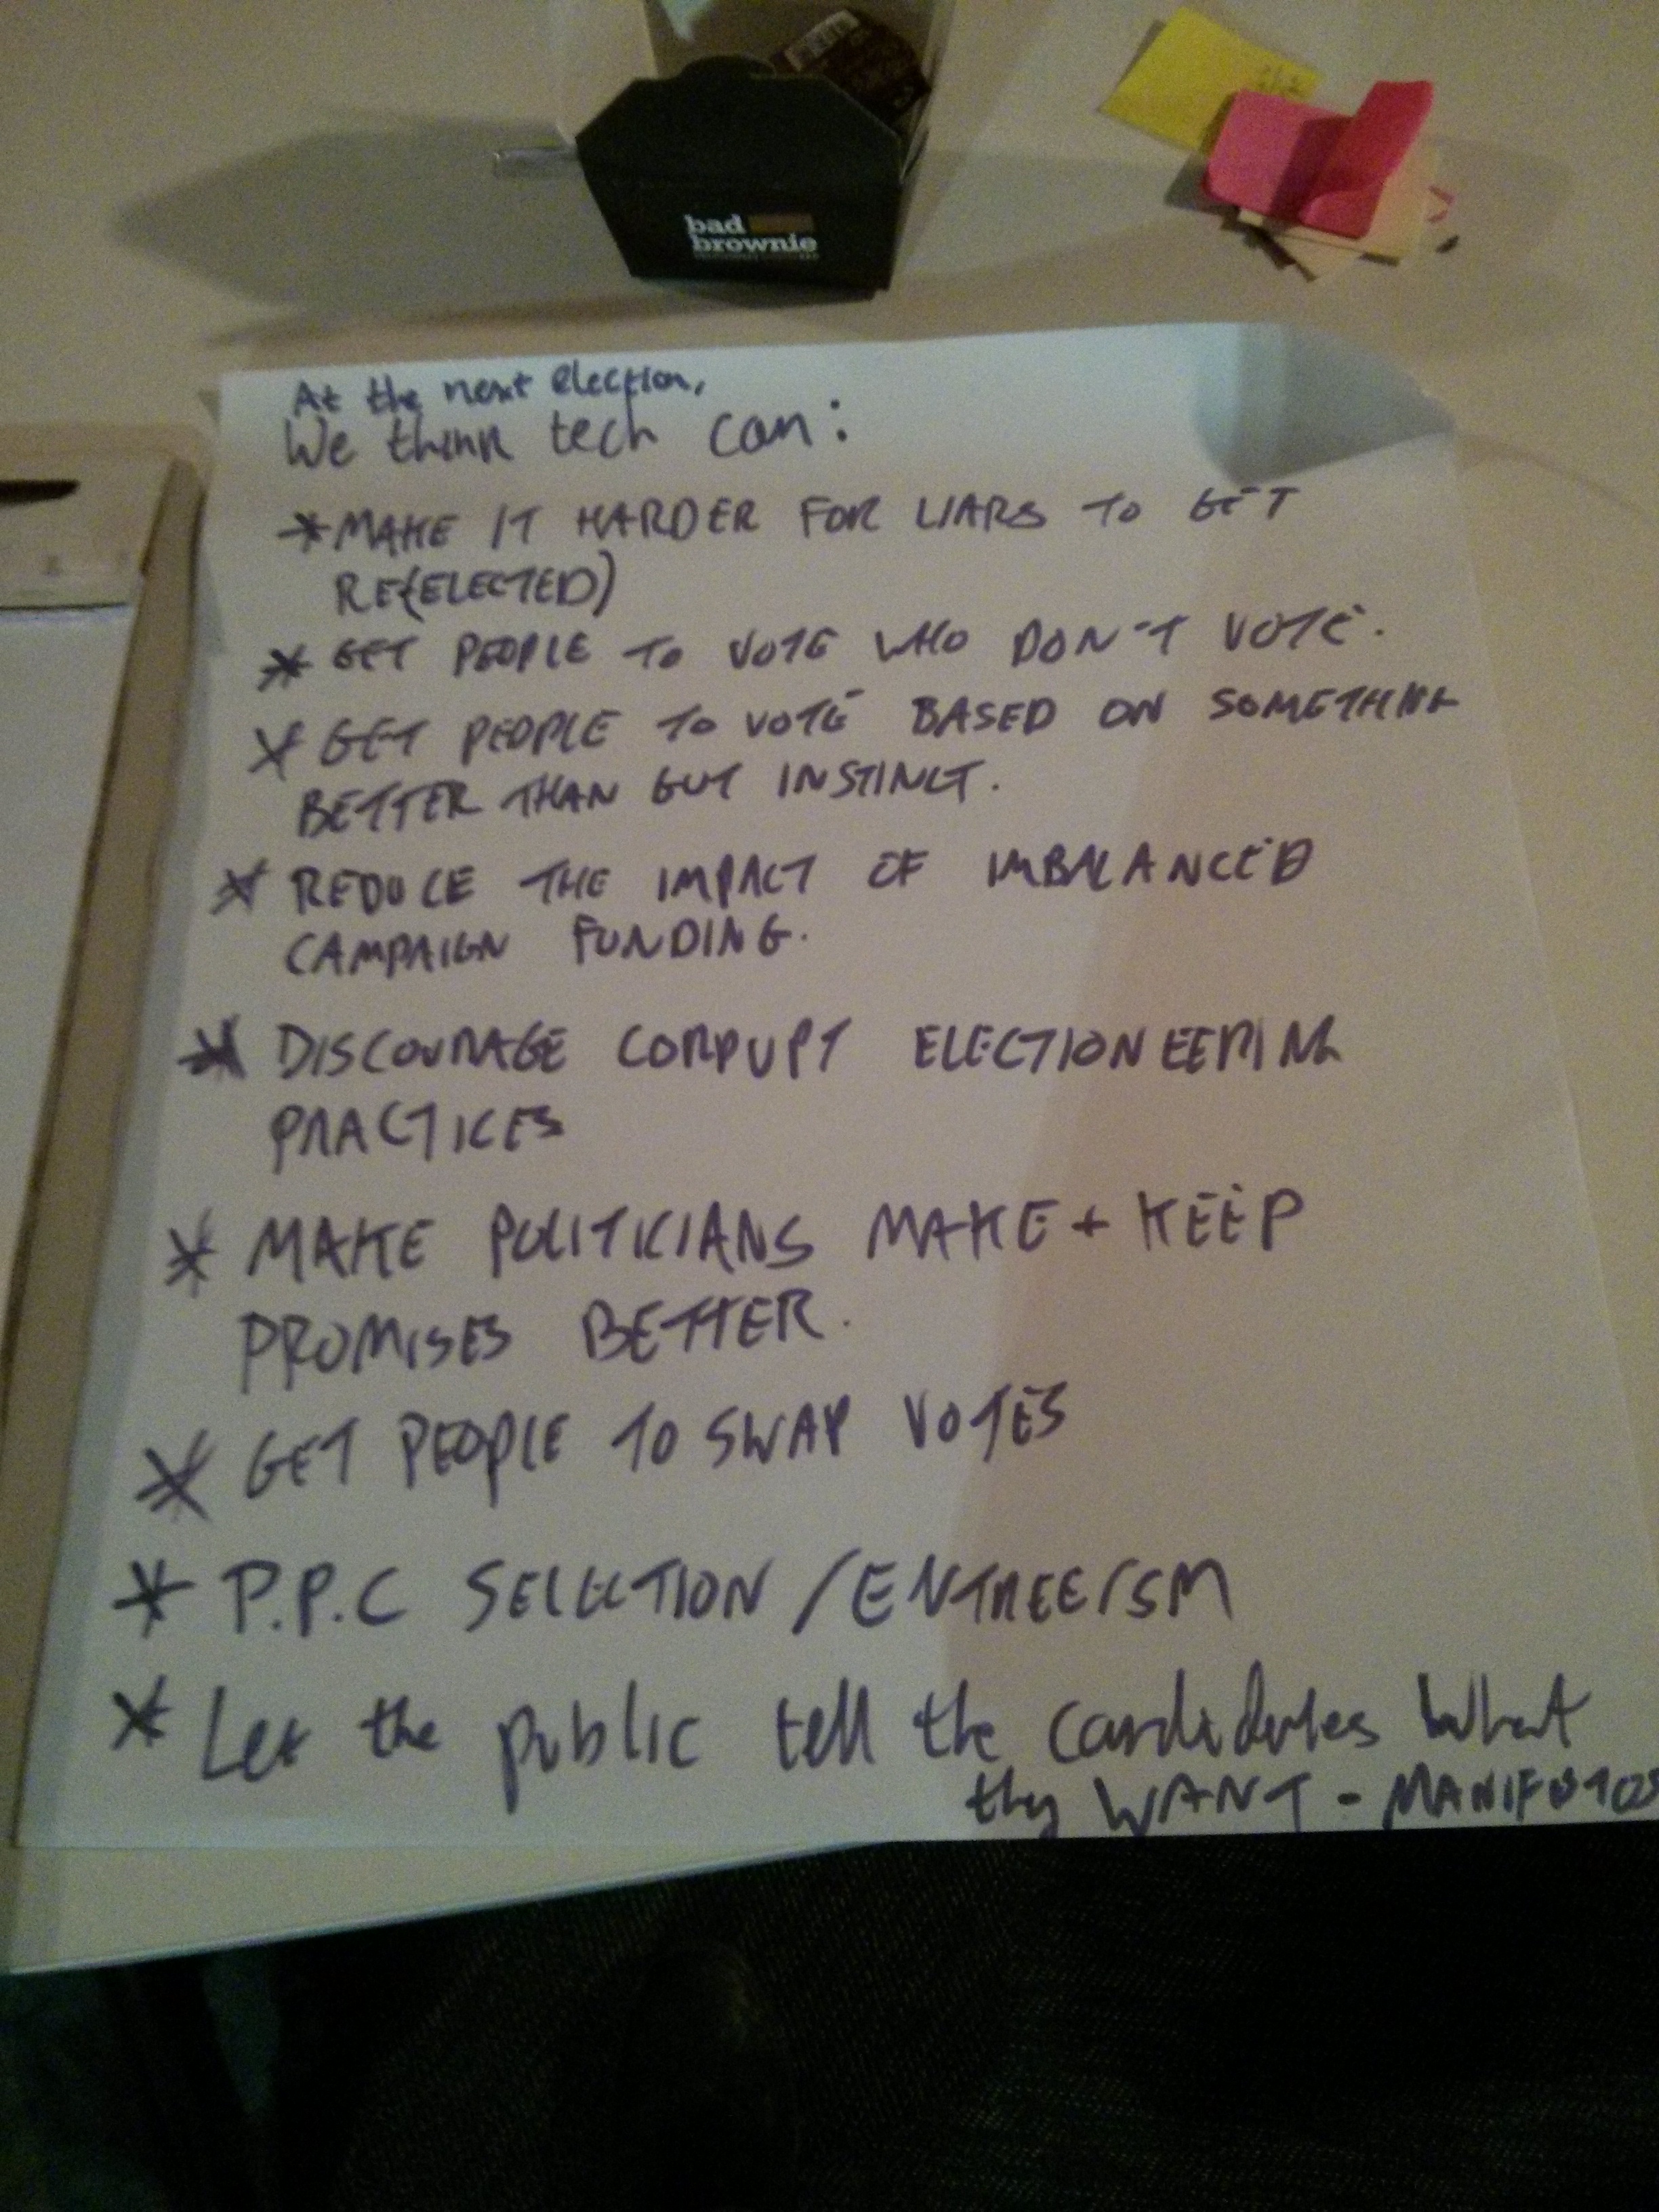 bad
brownie
At the next election,
We think tech can:
* MAKE IT HARDER FOR LIARS TO GET
RE(ELECTED)
* GET PEOPLE TO VOTE WHO DON'T VOTE.
* GET PEOPLE TO VOTE BASED ON SOMETHING
BETTER THAN GUT INSTINCT.
* REDUCE THE IMPACT OF IMBALANCED
CAMPAIGN FUNDING.
* DISCOURAGE CORRUPT ELECTIONEERING
PRACTICES
* MAKE POLITICIANS MAKE + KEEP
PROMISES BETTER.
* GET PEOPLE TO SWAP VOTES
* P.P.C SELECTION / ENTREEISM
* Let the public tell the candidates what
they WANT - MANIFESTOS